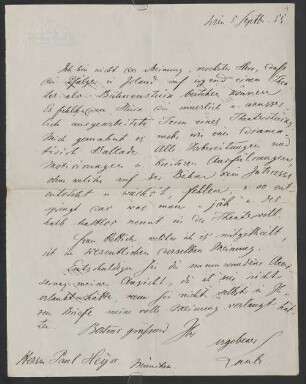 Wien 5 Septbr. 55
Ich bin nicht der Meinung, verehrter Herr, daß
die Pfälzer in Irland auf irgend einem Thea-
ter als Bühnenstück bestehen können
Es fehlt dem Stück die innerlich u. äusser-
lich ausgearbeitete Form eines Theaterstücks
Mich gemahnt es mehr, wie eine drama-
tisirte Ballade. Alle Vorbereitungen und
Motivirungen u. breiteren Ausführungen,
ohne welche auf der Bühne kein Interesse
entsteht u. wächst, fehlen, u. so ent-
springt das was man jäh u. des-
halb schroff nennt in der Theaterwelt
Frau Rettich, welcher ich es mitgetheilt,
ist im Wesentlichen derselben Meinung.
Entschuldigen Sie die unumwundene Aeus-
serung meiner Ansicht, die ich mir nicht
erlaubt hätte, wenn Sie nicht selbst in Ih-
rem Briefe meine volle Meinung verlangt hät-
ten.
Bestens grüßend Ihr
ergebener
Laube
Herrn Paul Heyse
München